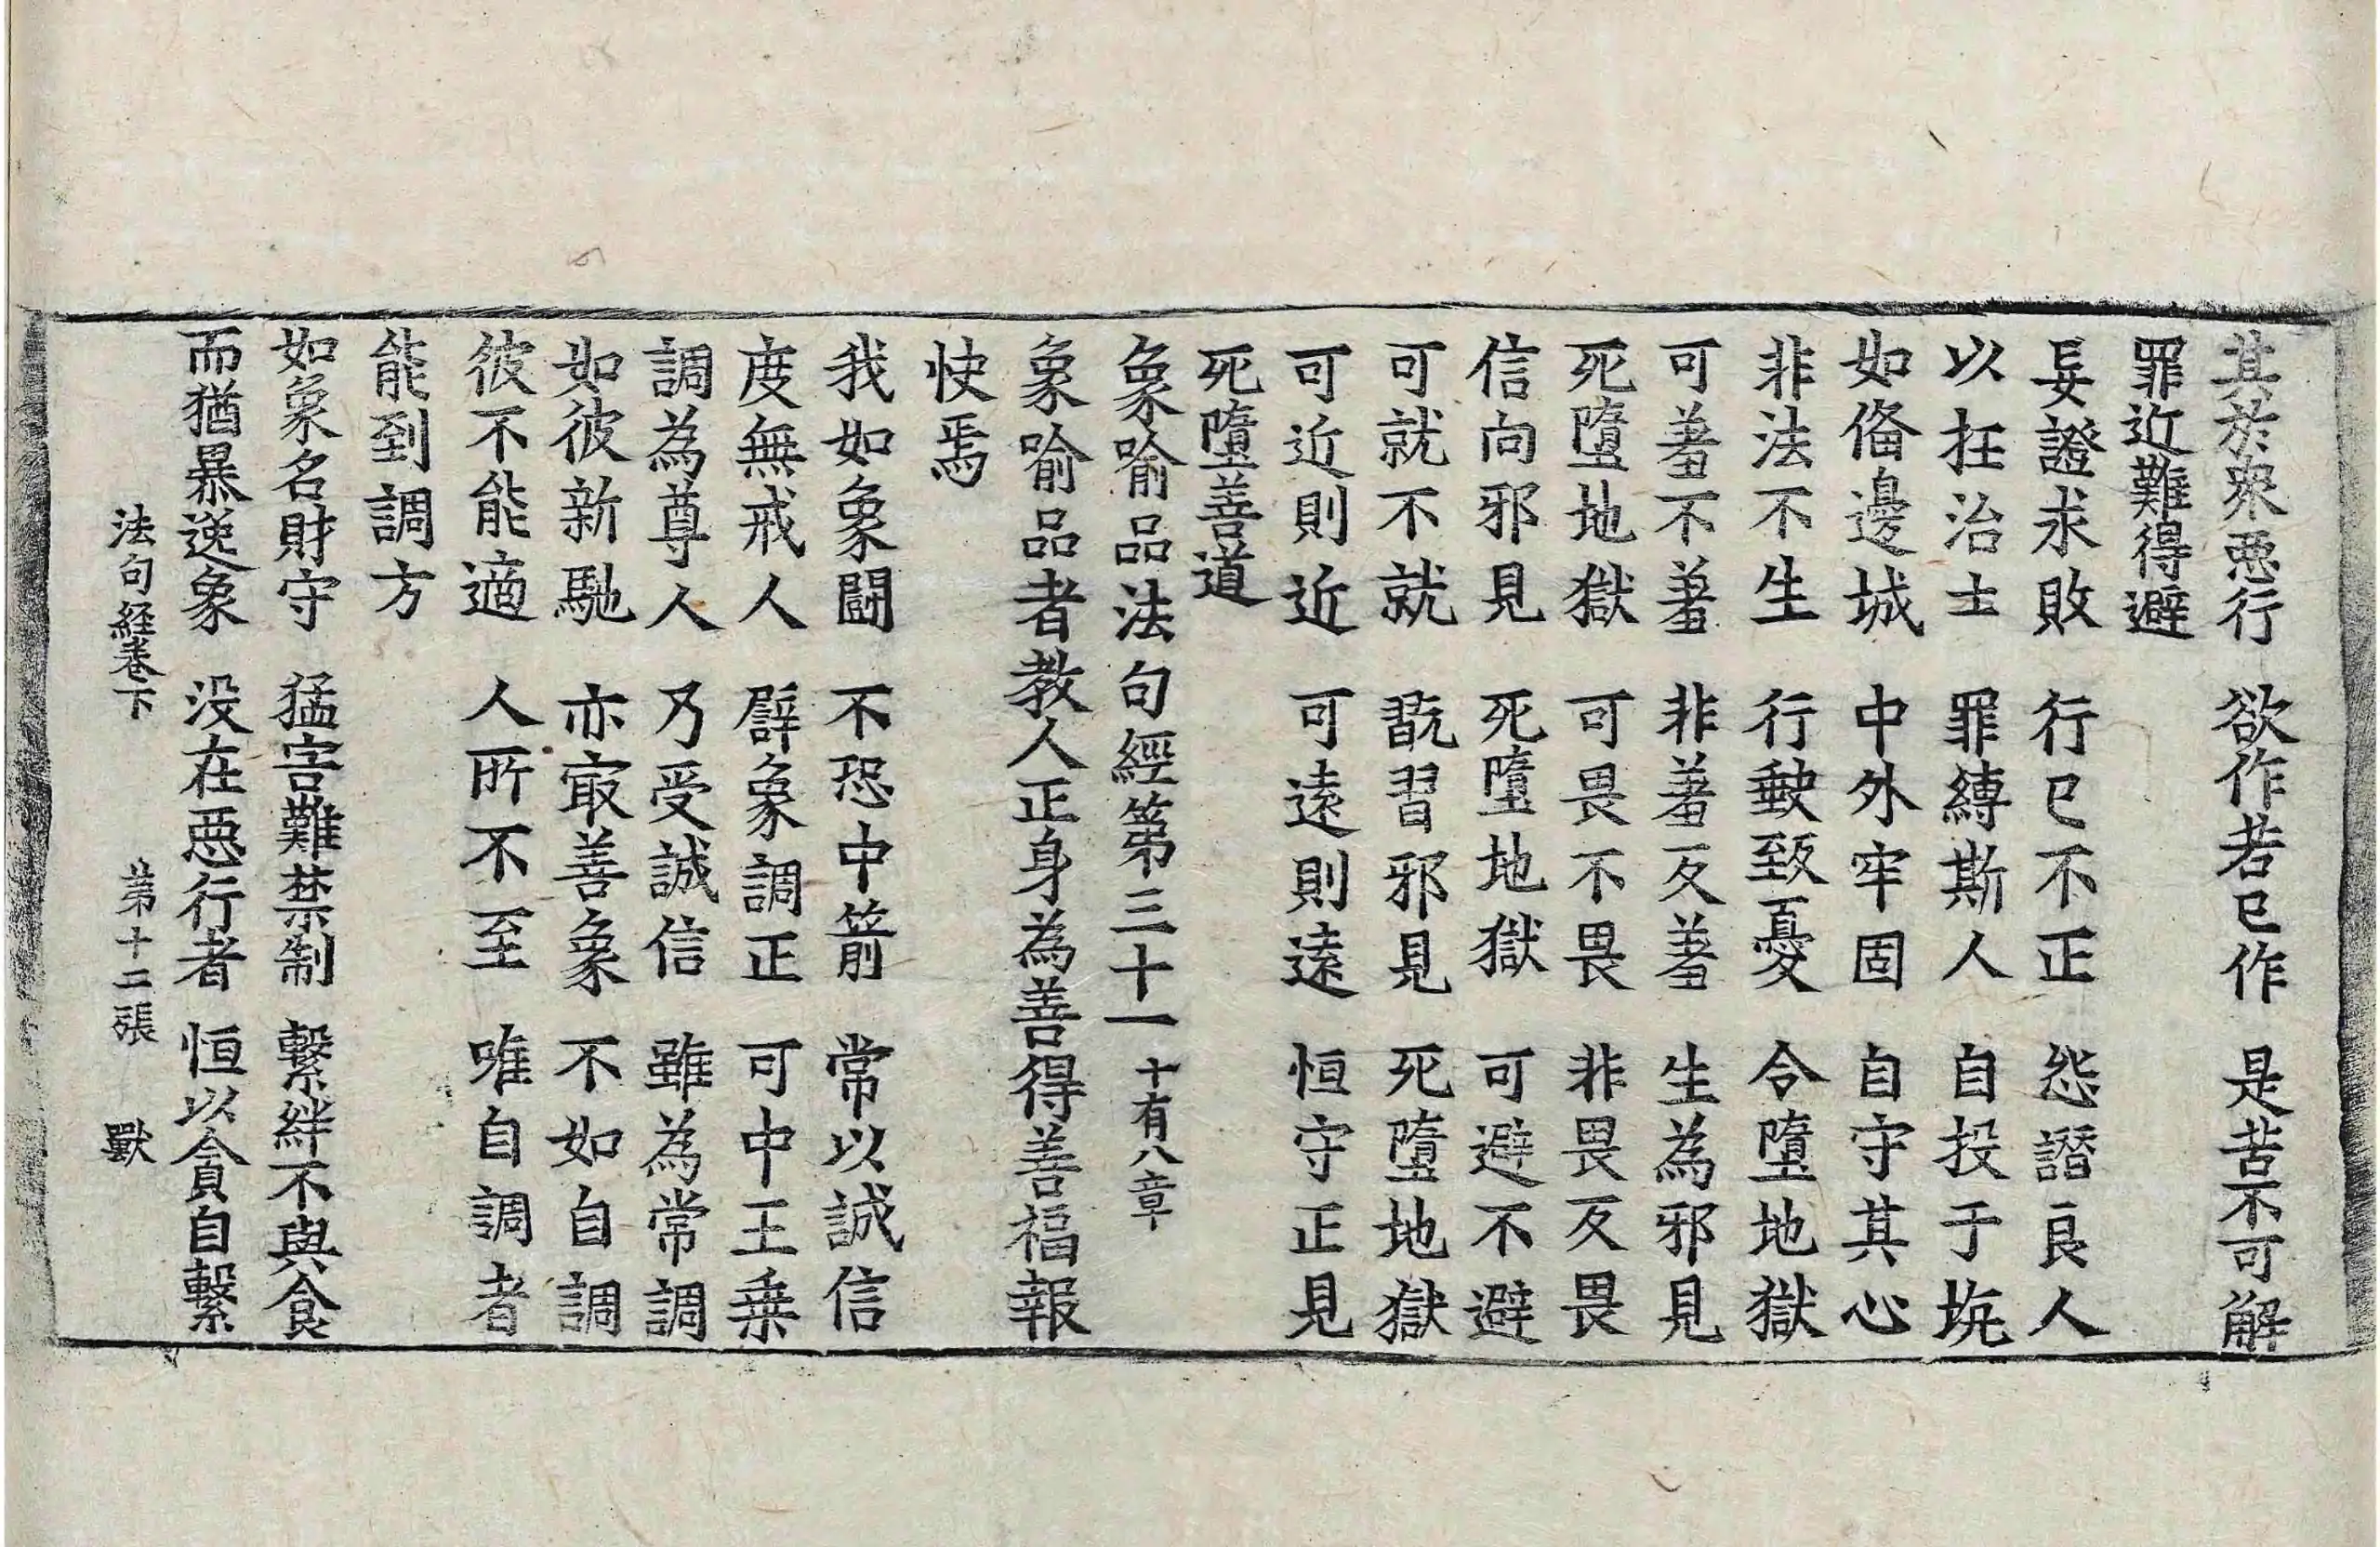 其於衆惡行　欲作若已作　是苦不可解
罪近難得避
妄證求敗　行已不正　怨譖良人
以抂治士　罪縛斯人　自投于坑
如俻邊城　中外牢固　自守其心
非法不生　行䡋致憂　令墮地獄
可羞不羞　非羞反羞　生為邪見
死墮地獄　可畏不畏　非畏反畏
信向邪見　死墮地獄　可避不避
可就不就　翫習邪見　死墮地獄
可近則近　可遠則遠　恒守正見
死墮善道
象喻品法句經第三十一　十有八章
象喻品者教人正身為善得善福報
快焉
我如象鬪　不恐中箭　常以誠信
度無戒人　辟象調正　可中王乗
調為尊人　乃受誠信　雖為常調
如彼新馳　亦㝡善象　不如自調
彼不能適　人所不至　唯自調者
能到調方
如象名財守　猛害難禁制　繫絆不與食
而猶暴逸象　没在惡行者　恒以貪自繫
法句経卷下　第十二張　獸